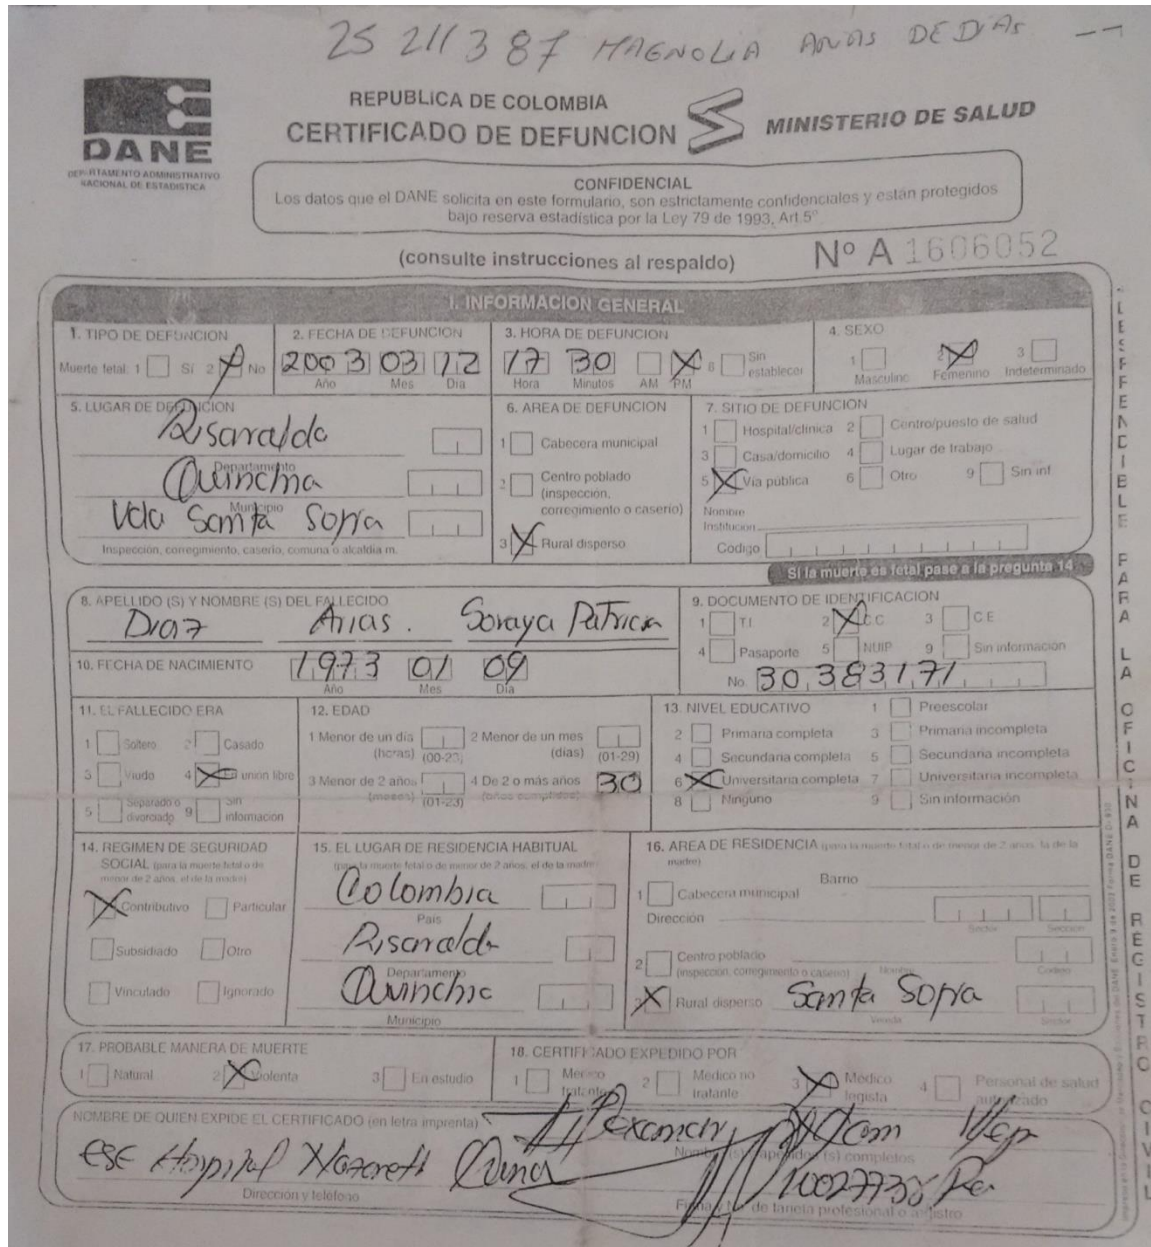 25 211 387 MAGNOLIA ARIAS DE DIAS
DANE
DEPARTAMENTO ADMINISTRATIVO
NACIONAL DE ESTADISTICA
REPUBLICA DE COLOMBIA
CERTIFICADO DE DEFUNCION
MINISTERIO DE SALUD
CONFIDENCIAL
Los datos que el DANE solicita en este formulario, son estrictamente confidenciales y están protegidos
bajo reserva estadística por la Ley 79 de 1993, Art 5°
(consulte instrucciones al respaldo)
Nº A 1606052
I. INFORMACION GENERAL
1. TIPO DE DEFUNCION
Muerte fetal: 1 Sí 2 X No
2. FECHA DE DEFUNCION
2003 03 12
Año Mes Día
3. HORA DE DEFUNCION
17 30 X 8 Sin establecer
Hora Minutos AM PM
4. SEXO
1 2 X 3
Masculino Femenino Indeterminado
5. LUGAR DE DEFUNCION
Risaralda
Departamento
Quinchia
Municipio
Vda Santa Sofia
Inspección, corregimiento, caserio, comuna o alcaldía m.
6. AREA DE DEFUNCION
1 Cabecera municipal
2 Centro poblado
(inspección,
corregimiento o caserío)
3 X Rural disperso
7. SITIO DE DEFUNCION
1 Hospital/clínica 2 Centro/puesto de salud
3 Casa/domicilio 4 Lugar de trabajo
5 X Vía pública 6 Otro 9 Sin inf
Nombre
Institución
Codigo
Si la muerte es fetal pase a la pregunta 14
8. APELLIDO (S) Y NOMBRE (S) DEL FALLECIDO
Diaz Arias. Soraya Patricia
9. DOCUMENTO DE IDENTIFICACION
1 T.I 2 X C.C 3 C E
4 Pasaporte 5 NUIP 9 Sin información
No. 30.383171
10. FECHA DE NACIMIENTO
1973 01 09
Año Mes Día
11. EL FALLECIDO ERA
1 Soltero 2 Casado
3 Viudo 4 X En unión libre
5 Separado o divorciado 9 Sin información
12. EDAD
1 Menor de un día (horas) (00-23) 2 Menor de un mes (días) (01-29)
3 Menor de 2 años (meses) (01-23) 4 De 2 o más años (años cumplidos) 30
13. NIVEL EDUCATIVO 1 Preescolar
2 Primaria completa 3 Primaria incompleta
4 Secundaria completa 5 Secundaria incompleta
6 X Universitaria completa 7 Universitaria incompleta
8 Ninguno 9 Sin información
14. REGIMEN DE SEGURIDAD
SOCIAL (para la muerte fetal o de
menor de 2 años, el de la madre)
X Contributivo Particular
Subsidiado Otro
Vinculado Ignorado
15. EL LUGAR DE RESIDENCIA HABITUAL
(para la muerte fetal o de menor de 2 años, el de la madre)
Colombia
País
Risaralda
Departamento
Quinchia
Municipio
16. AREA DE RESIDENCIA (para la muerte fetal o de menor de 2 años, la de la
madre)
Barrio
1 Cabecera municipal
Dirección
Sector Sección
2 Centro poblado
(inspección, corregimiento o caserío) Nombre Codigo
3 X Rural disperso Santa Sofia
Vereda Sector
17. PROBABLE MANERA DE MUERTE
1 Natural 2 X Violenta 3 En estudio
18. CERTIFICADO EXPEDIDO POR
1 Medico tratante 2 Medico no tratante 3 X Médico legista 4 Personal de salud autorizado
NOMBRE DE QUIEN EXPIDE EL CERTIFICADO (en letra imprenta)
Nombre (s) y apellidos (s) completos
ESE Hospital Nazareth
Dirección y teléfono
10027738
Firma y No. de tarjeta profesional o registro
DESPRENDIBLE PARA LA OFICINA DE REGISTRO CIVIL